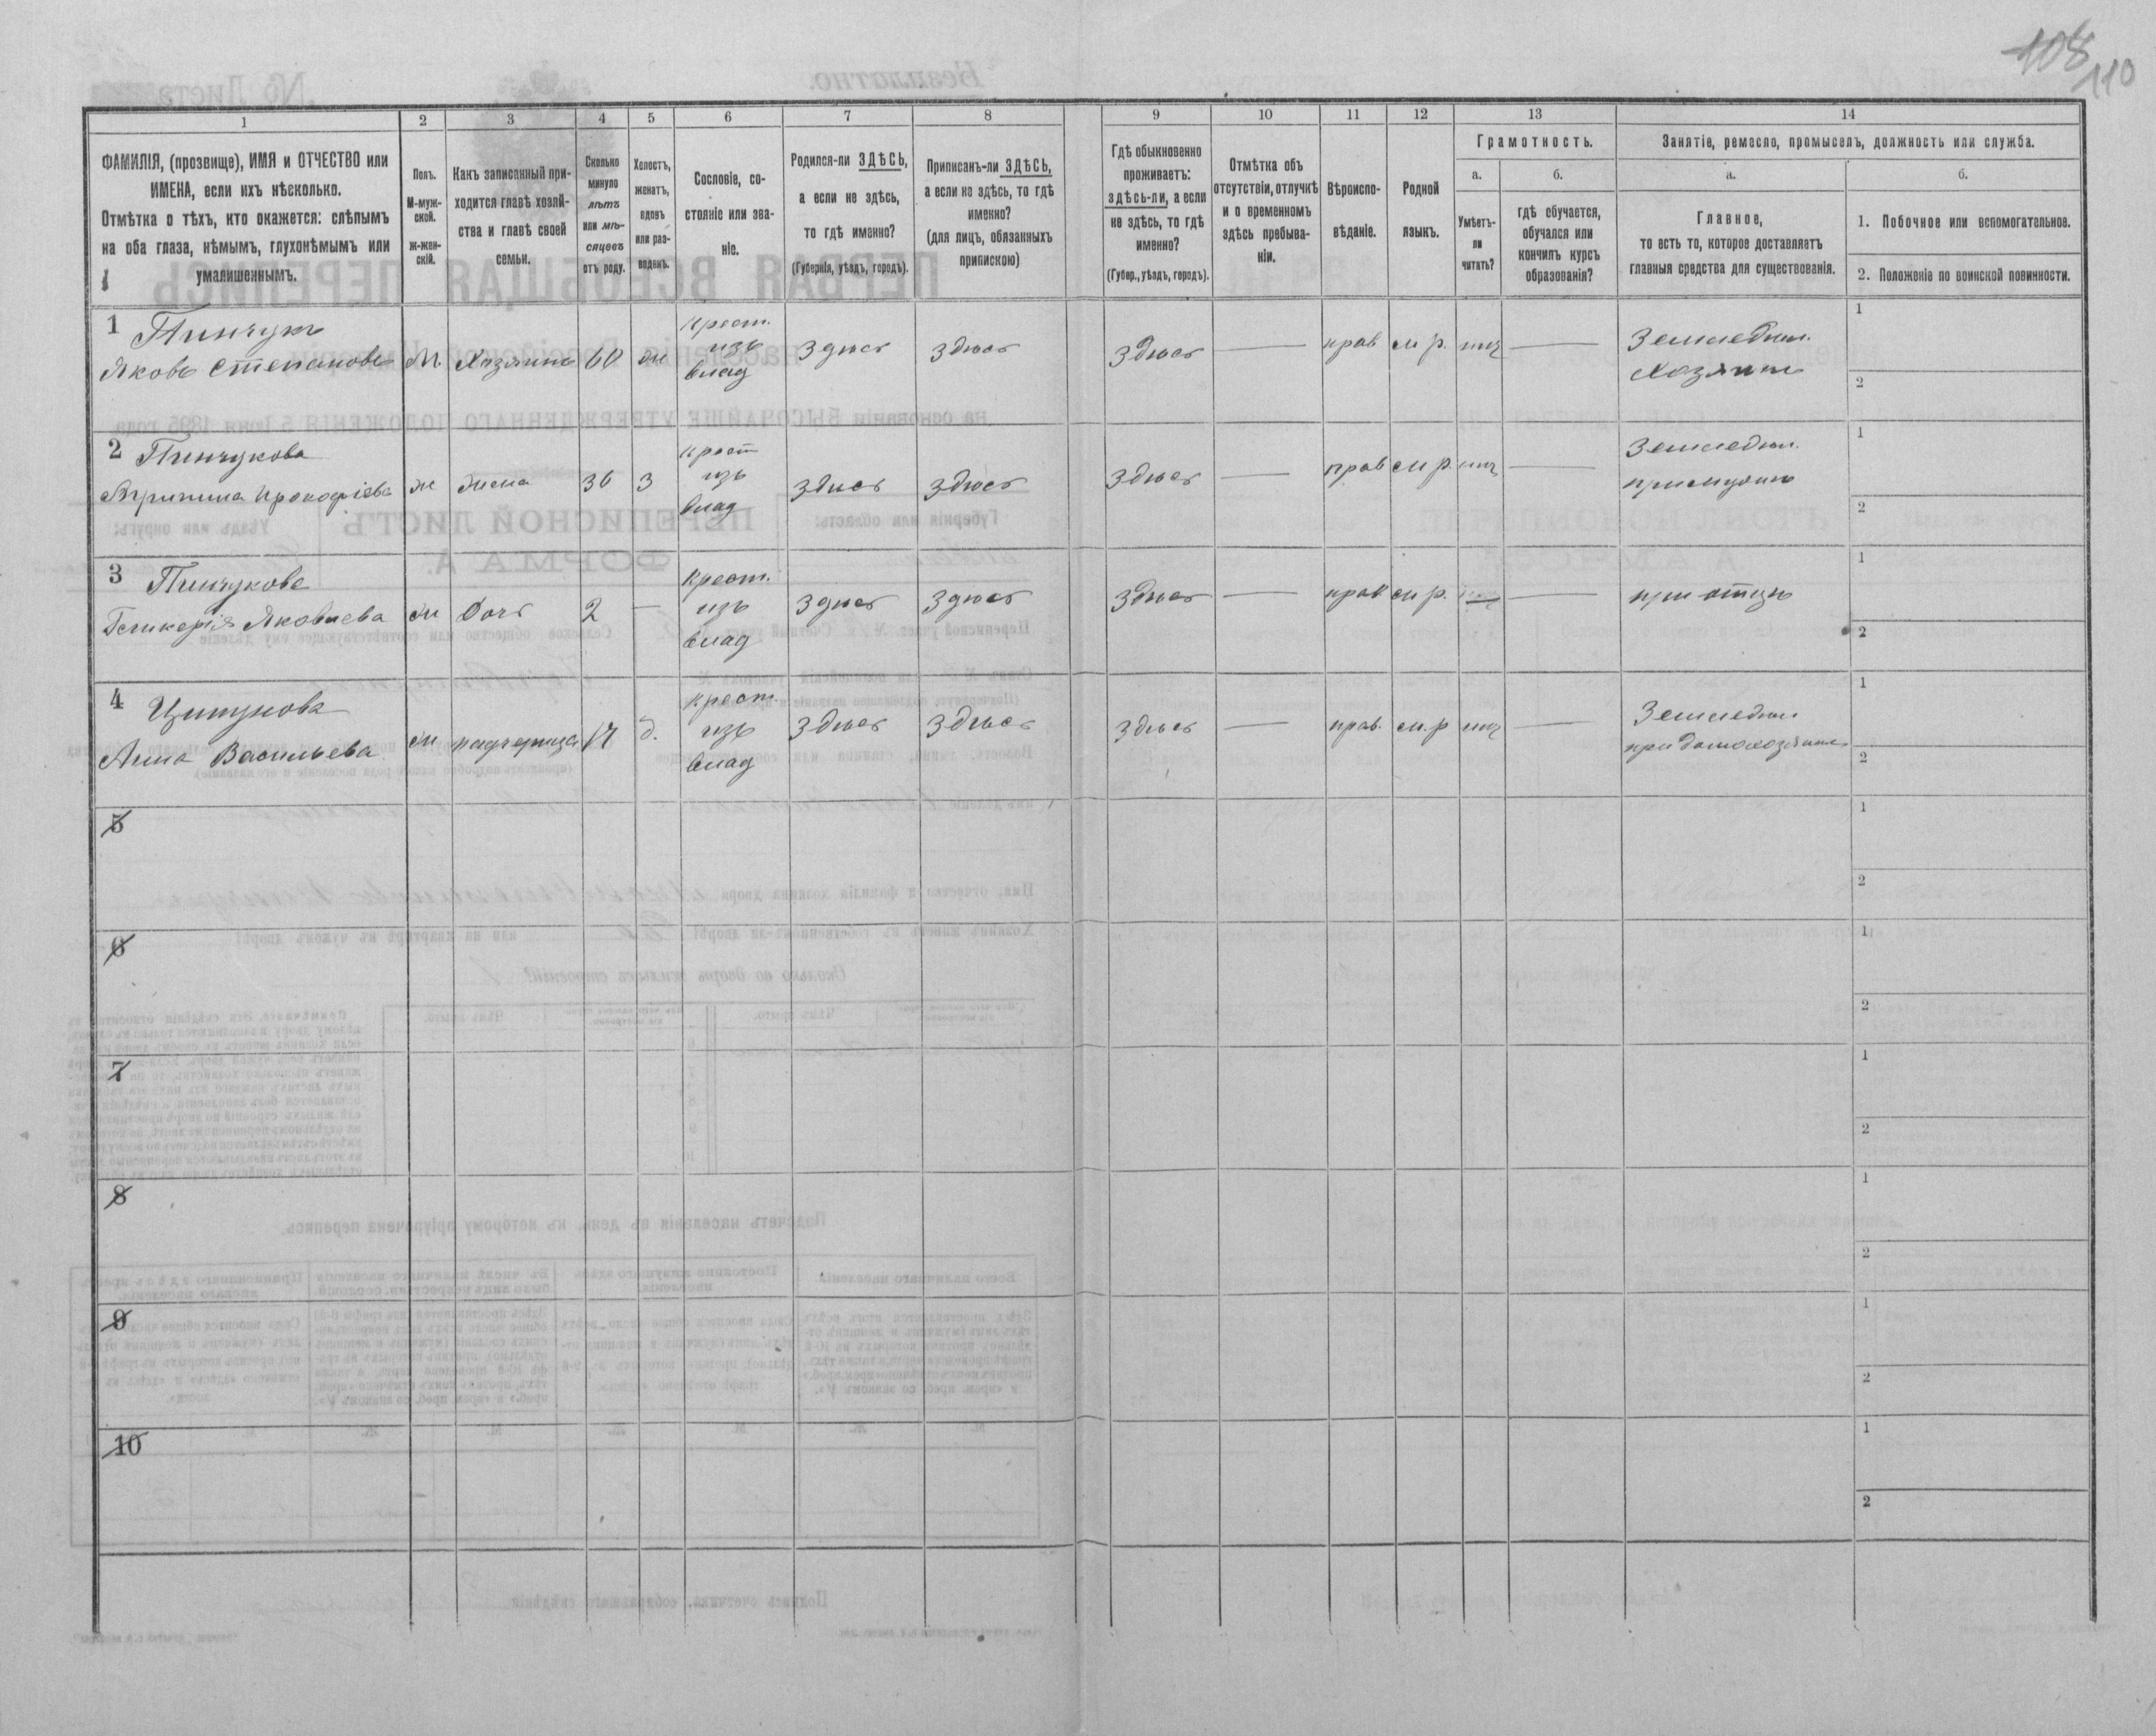 108
110
1 2 3 4 5 6 7 8 9 10 11 12 13 14
ФАМИЛІЯ, (прозвище), ИМЯ и ОТЧЕСТВО или
ИМЕНА, если ихъ нѣсколько.
Отмѣтка о тѣхъ, кто окажется: слѣпымъ
на оба глаза, нѣмымъ, глухонѣмымъ или
умалишеннымъ.
Полъ.
М-муж-
ской.
ж-жен-
скій.
Какъ записанный при-
ходится главѣ хозяй-
ства и главѣ своей
семьи.
Сколько
минуло
лѣтъ
или мѣ-
сяцевъ
отъ роду.
Холостъ,
женатъ,
вдовъ
или раз-
веденъ.
Сословіе, со-
стояніе или зва-
ніе.
Родился-ли ЗДѢСЬ,
а если не здѣсь,
то гдѣ именно?
(Губернія, уѣздъ, городъ).
Приписанъ-ли ЗДѢСЬ,
а если не здѣсь, то гдѣ
именно?
(для лицъ, обязанныхъ
припискою)
Гдѣ обыкновенно
проживаетъ:
здѣсь-ли, а если
не здѣсь, то гдѣ
именно?
(Губер., уѣздъ, городъ).
Отмѣтка объ
отсутствіи, отлучкѣ
и о временномъ
здѣсь пребыва-
ніи.
Вѣроиспо-
вѣданіе.
Родной
языкъ.
Грамотность.
а.
Умѣетъ-
ли
читать?
б.
гдѣ обучается,
обучался или
кончилъ курсъ
образованія?
Занятіе, ремесло, промыселъ, должность или служба.
а.
Главное,
то есть то, которое доставляетъ
главныя средства для существованія.
б.
1. Побочное или вспомогательное.
2. Положеніе по воинской повинности.
1 Пинчукъ
Яковъ Степановъ М. Хозяинъ 60 ж
крест.
изъ
влад
Здѣсь Здѣсь Здѣсь — прав м р. —
Земледѣл.
Хозяинъ
1
2
2 Пинчукова
Агрипина Прокофіева ж жена 36 З
крест
изъ
влад
Здѣсь Здѣсь Здѣсь — прав м р. —
Земледѣл.
при мужѣ
1
2
3 Пинчукова
Гликерія Яковлева ж Дочь 2 —
крест.
изъ
влад
Здѣсь Здѣсь Здѣсь — прав м р. — —
при отцѣ
1
2
4 Цимунова
Анна Васильева ж падчерица 17 д.
крест.
изъ
влад
Здѣсь Здѣсь Здѣсь — прав. м. р —
Земледѣл
при домохозяинѣ
1
2
5
1
2
6
1
2
7
1
2
8
1
2
9
1
2
10
1
2